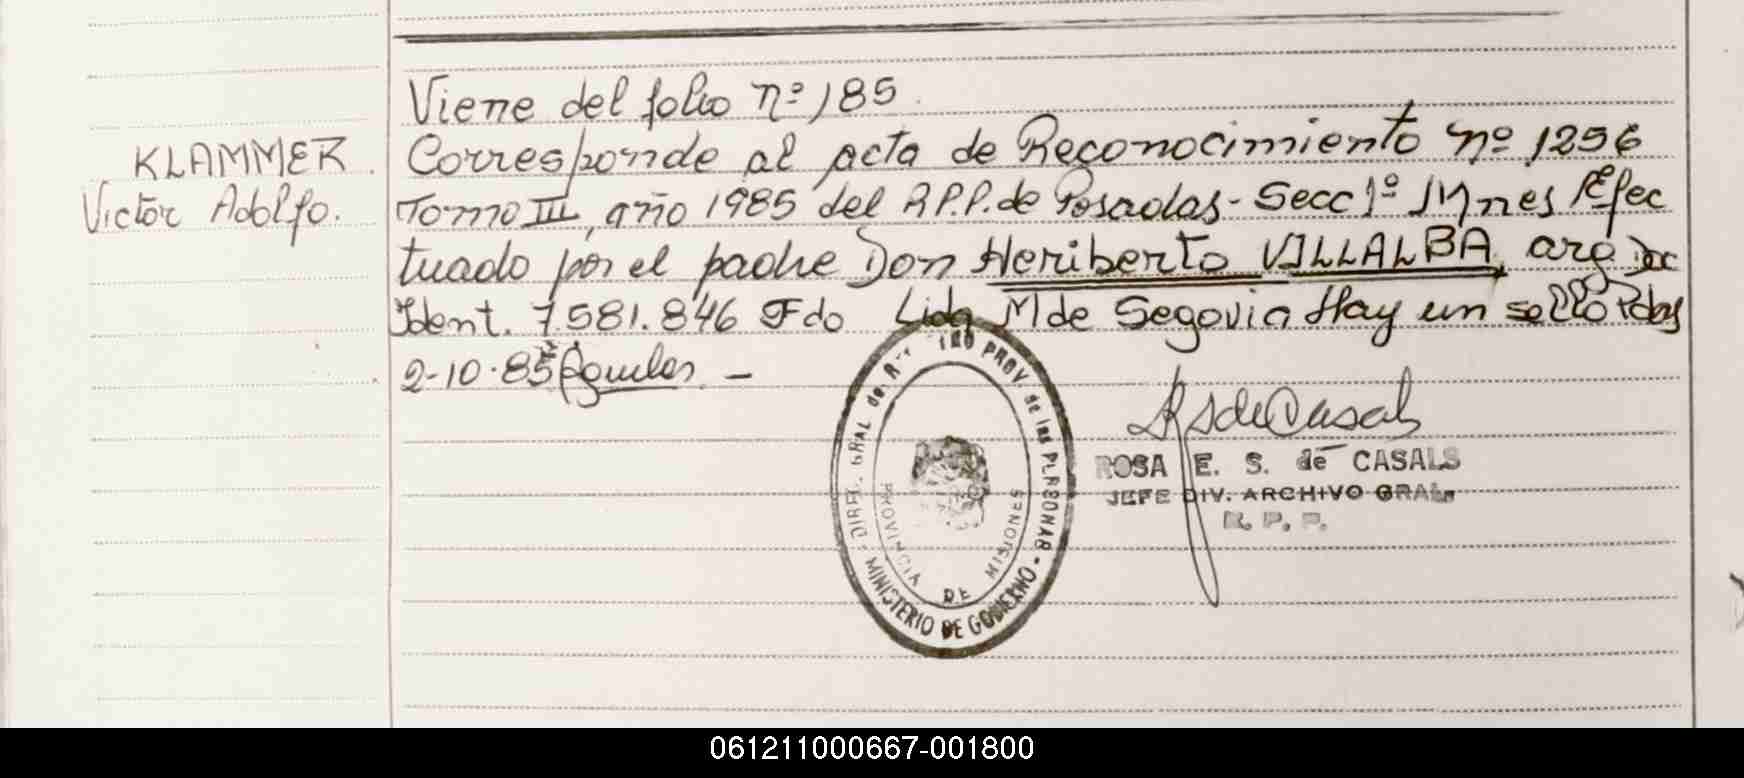 Viene del folio nº 185.
KLAMMER
Victor Adolfo.
Corresponde al acta de Reconocimiento nº 1256
Tomo III, año 1985 del R.P.P. de Posadas - Secc 1º Mnes Efec
tuado por el padre Don Heriberto VILLALBA, arg Doc
Ident. 7.581.846 Fdo Lida M de Segovia Hay un sello Pdas
2-10-85
DIREC. GRAL de REGISTRO PROV. de las PERSONAS - MINISTERIO DE GOBIERNO -
PROVINCIA DE MISIONES
RS de Casals
ROSA E. S. de CASALS
JEFE DIV. ARCHIVO GRAL.
R. P. P.
061211000667-001800